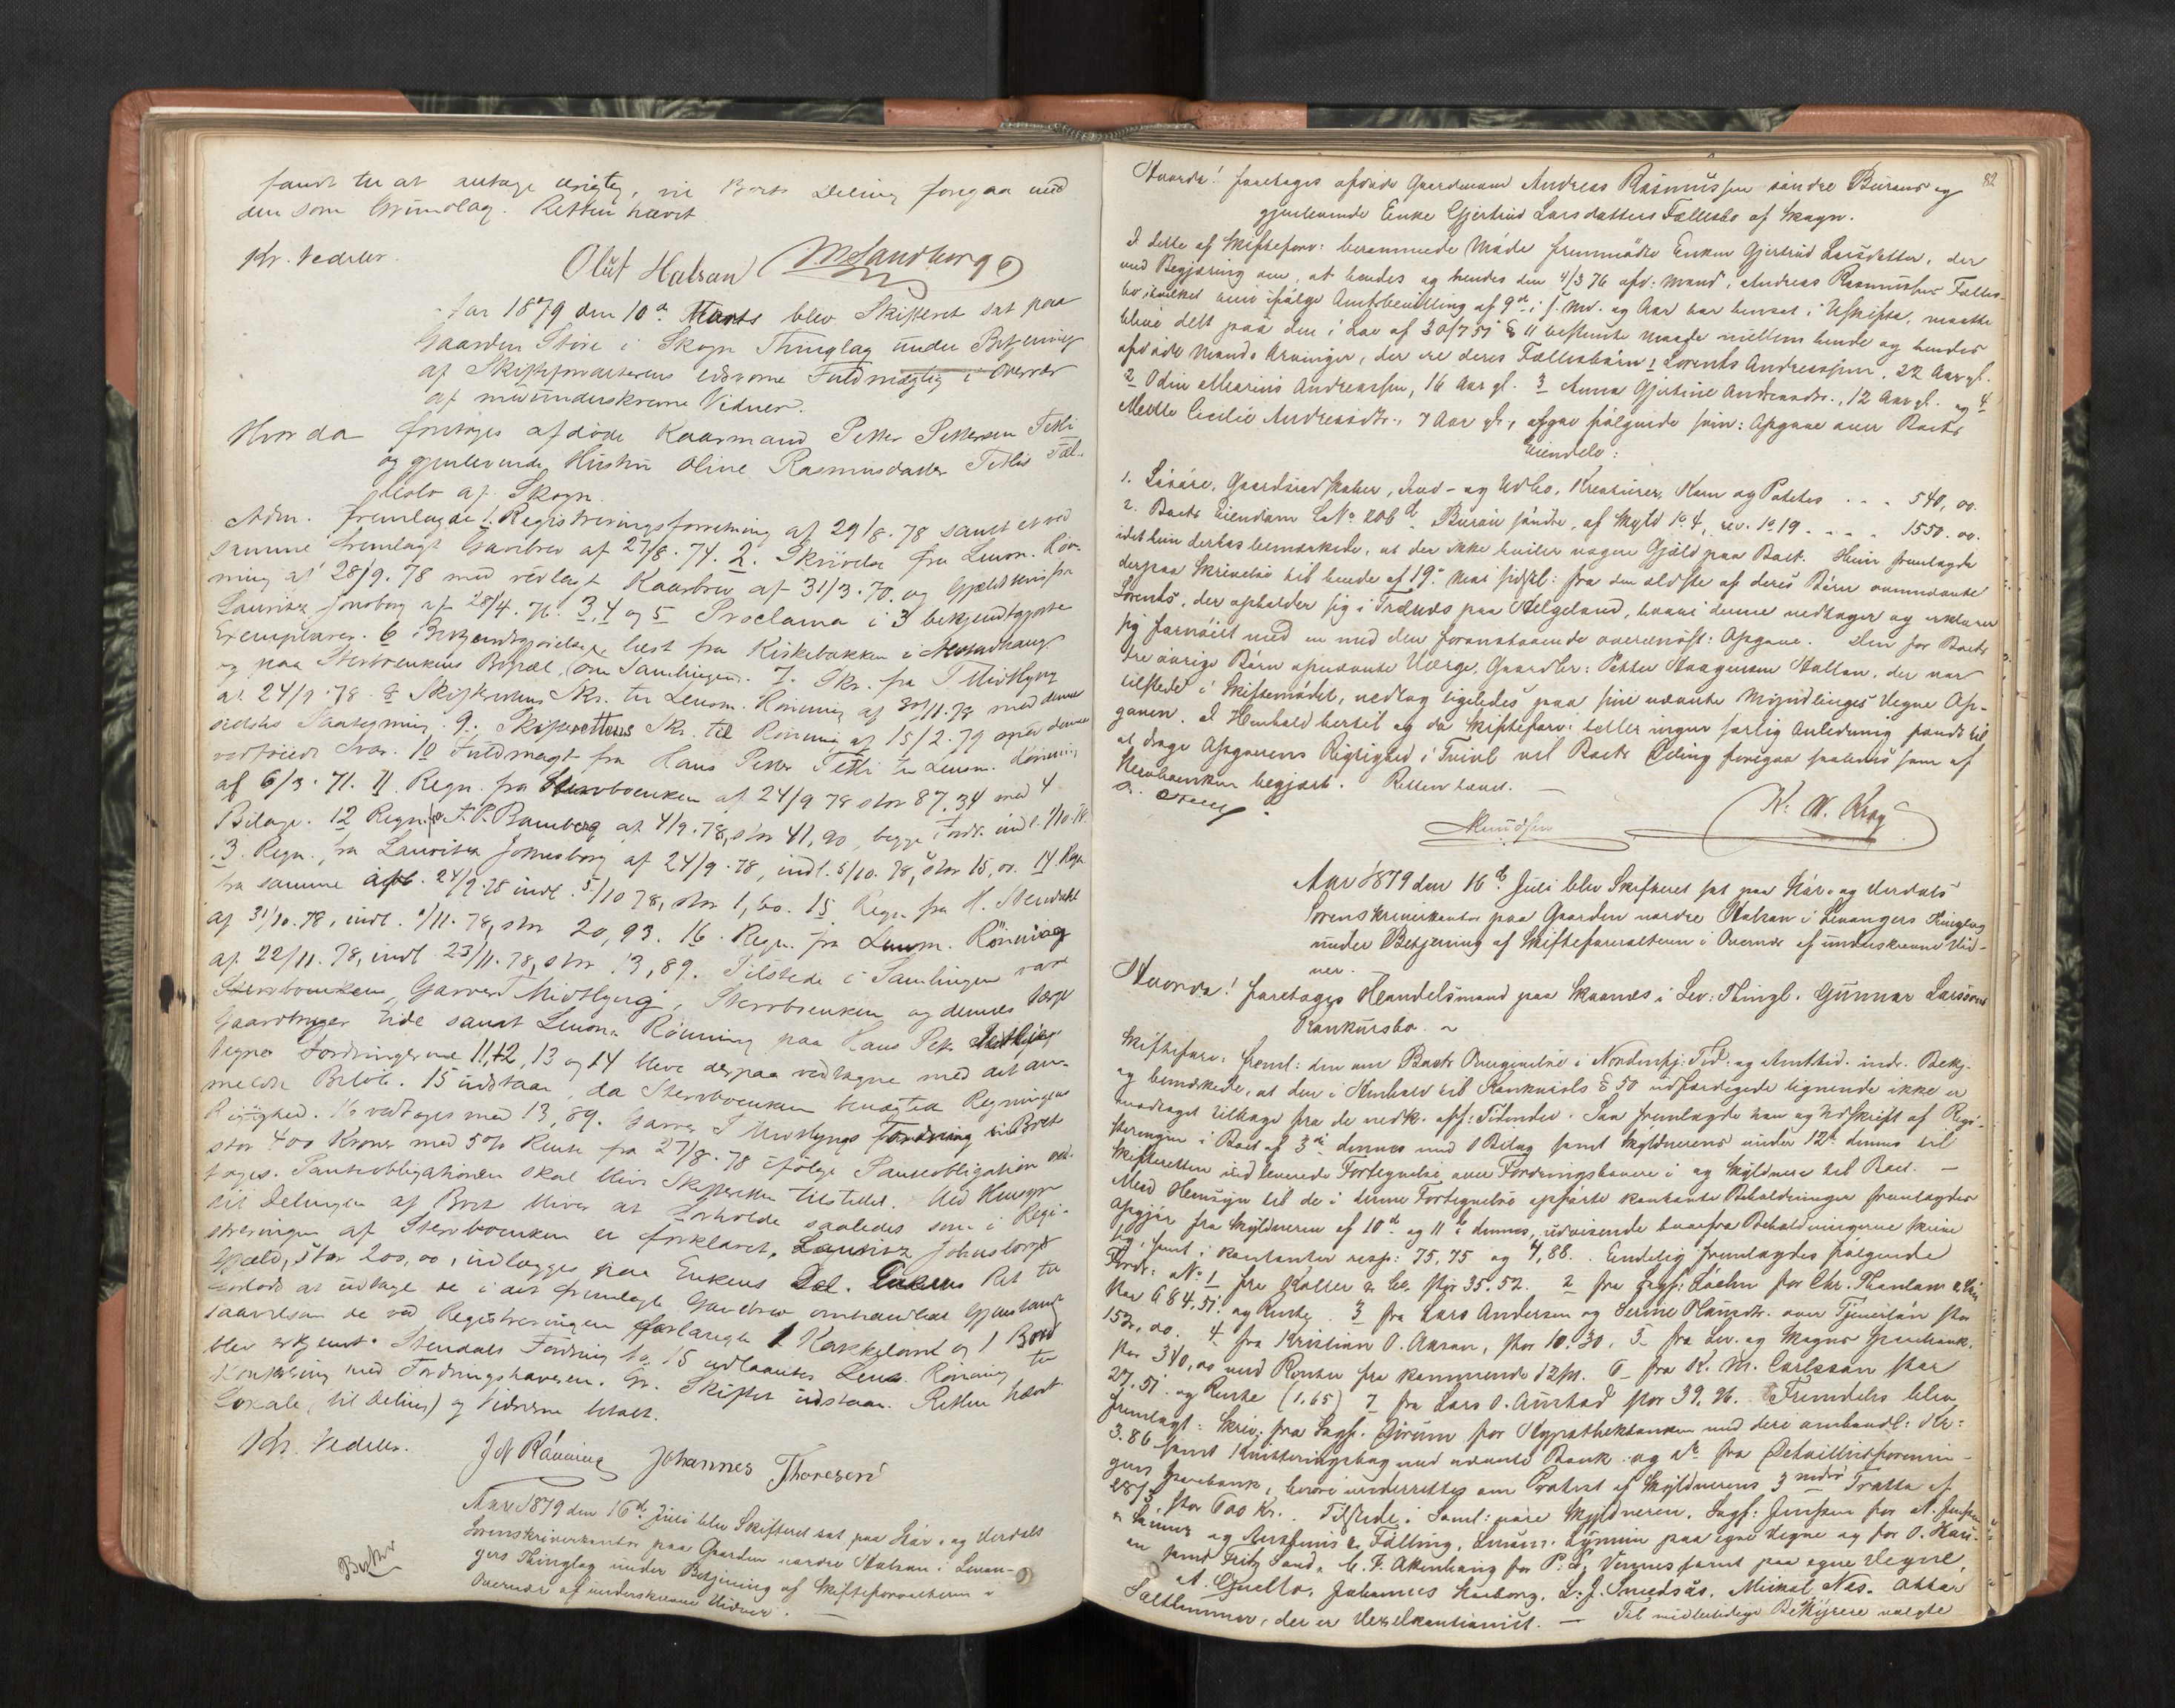 fandt til at antage urigtig, vil Boets Deling foregaa med
den som Grundlag. Retten hævet.
Kr. Vedeler.
Oluf Halsan MSandberg
Aar 1879 den 10de Marts blev Skifteret sat paa
Gaarden Støre i Skogn Thinglag under Betjening
af Skifteforvalterens edsvorne Fuldmægtig i Overvær
af medunderskrevne Vidner.
Hvorda foretages afdøde Kaarmand Petter Pettersen Tetli
og gjenlevende Hustru Oline Rasmusdatter Tetlis Fæl-
lesbo af Skogn.
Adm. fremlagde 1. Registreringsforretning af 29/8. 78 samt et ved
samme fremlagt Gavebrev af 27/8. 74. 2. Skrivelse fra Lensm. Røn-
ning af 28/9. 78 med vedlagt Kaarbrev af 31/3. 70. og Gjeldsbevis fra
Lauritz Jonsborg af 28/4. 76. 3, 4 og 5 Proclama i 3 bekjendtgjorte
Exemplarer. 6 Bekjendtgjørelse læst fra Kirkebakken i
og paa Sterboenkens Bopæl, om Samlingen. 7. Skr. fra T Midtlyng
af 24/9. 78. 8 Skifterettens Skr. til Lensm. Rønning af 30/11. 78 med dennes
Paategning. 9. Skifterettens Skr. til Rønning af 15/2. 79 med dennes
vedføiede Svar. 10 Fuldmagt fra Hans Petter Tetli til Lensm. Rønning
af 6/3. 71. 11. Regn. fra Sterboenken af 24/9 78 stor 87.34 med 4
Bilage. 12 Regn. fra F. P. Ramberg af 4/9. 78, stor 41,90, begge Fordr. indl. 1/10. 78.
13. Regn. fra Lauritz Jonsborg af 24/9. 78, indl. 5/10. 78, stor 15, 00. 14. Regn.
fra samme afl. 24/9.78 indl. 5/10 78, stor 1,60. 15 Regn. fra H. Stendahl
af 31/10. 78, indl. 1/11. 78, stor 20,93. 16. Regn. fra Lensm. Rønning
af 22/11. 78, indl 23/11. 78, stor 13,89. Tilstede i Samlingen var
Sterboenken, Garver T Midtlyng, Sterboenken og dennes Værge
Gaardbruger Eide samt Lensm. Rønning paa Hans Petter
Vegne. Fordringerne 11, 12, 13 og 14 bleve derpaa vedtagne med det an-
meldte Beløb. 15 udstaar, da Sterboenken benægted Regningens
Rigtighed. 16 vedtoges med 13,89. Garver T Midtlyngs Fordring i Boet
stor 400 Kroner med 5% Rente fra 27/8. 78 ifølge Panteobligation ved-
toges. Panteobligationen skal blive Skifteretten tilstillet. Ved Hensyn
til Delingen af Boet bliver at forholde saaledes som i Regi-
streringen af Sterboenken er forklaret. Lauritz Johnsborgs
Gjæld, stor 200,00, indlægges paa Enkens Del. Enkens Ret til
forlods at udtage de i det fremlagte Gavebrev omhandlede Gjenstande
saavelsom de ved Registreringen forlangte 1 Kakkelovn og 1 Bord
blev erkjendt. Stendals Fordring No 15 udlaantes Lens. Rønning til
Konferering med Fordringshaveren. Gr. Skiftet udstaar. Retten hævet
Lokale (til Deling) og Vidnerne betalt.
Kr. Vedeler.
J N Rönning Johannes Thoresen
Aar 1879 den 16de Juli blev Skifteret sat paa Stør- og Værdals
Sorenskriverkontor paa Gaarden nordre Halsan i Levan-
gers Thinglag under Betjening af Skifteforvalteren i
Overvær af underskrevne Vidner. —
82
Hvorda! foretages afdøde Gaardmand Andreas Rasmussen søndre Buraas og
gjenlevende Enke Gjertrud Larsdatters Fællesbo af Skogn.
I dette af Skifteforv: berammede Møde fremmødte Enken Gjertrud Larsdatter, der
med Begjæring om, at hendes og hendes den 4/3 76 afd. Mand, Andreas Rasmussens Fælles-
bo, hvilket hun ifølge Amtsbevilling af 9de i f. Md. og Aar har hensat i Uskifte, maatte
blive delt paa den i Lov af 30/7 51 § 11 bestemte Maade mellem hende og hendes
afdøde Mands Arvinger, der ere deres Fællesbørn 1 Lorents Andreassen, 22 Aar gl.
2 Odin Marius Andreassen, 16 Aar gl. 3 Anna Gjertine Andreasdtr., 12 Aar gl. og 4
Mette Cecilie Andreasdtr., 7 Aar gl., afgav følgende sum: Opgave over Boets
Eiendele:
1. Løsøre, Gaardsredskaber, Ind- og Udbo, Kreaturer, Korn og Poteter . . . 540, 00.
2. Boets Eiendom LNo 206 b Buraas søndre, af Skyld 1. 4, rev. 1. 19 . . . . 1550. 00.
idet hun derhos bemærkede, at der ikke hviler nogen Gjæld paa Boet. Hun fremlagde
derpaa Skrivelse til hende af 19de Mai sidstl: fra den ældste af deres Børn ovennævnte
Lorents, der opholder sig i Trænes paa Helgeland, hvori denne vedtager og erklærer
sig fornøiet med en med den foranstaaende overensst: Opgave. Den for Boets
tre øvrige Børn opnævnte Værge, Gaardbr: Petter Haagensen Hallan, der var
tilstede i Skiftemødet, vedtog ligeledes paa sine nævnte Myndlinges Vegne Op-
gaven. I Henhold hertil og da Skifteforv: heller ingen særlig Anledning fandt til
at drage Opgavens Rigtighed i Tvivl vil Boets Deling foregaa saaledes som af
Sterboenken begjært. Retten hævet. —
K: M. Krog
Knudsen
Aar 1879 den 16de Juli blev Skifteret sat paa Stør- og Værdals
Sorenskriverkontor paa Gaarden nordre Halsan i Levangers Thinglag
under Betjening af Skifteforvalteren i Overvær af underskrevne Vid-
ner. —
Hvorda! foretages Handelsmand paa Skaanes i Lev: Thingl. Gunnar Larssons
Konkursbo. ~
Skifteforv: freml: den om Boets Overgivelse i Nordenfj: Tid. og Amttid. indr. Bekj.
og bemærkede, at den i Henhold til Konkursls § 50 udfærdigede lignende ikke er
modtaget tilbage fra de nedk. off: Tidender. Saa fremlagde han og Udskrift af Regi-
streringen i Boet af 3de dennes med 1 Bilag samt Skyldnerens under 12te dennes til
Skifteretten indleverede Fortegnelse over Fordringshavere i og Skyldnere til Boet. —
Med Hensyn til de i denne Fortegnelse opførte kontante Beholdninger fremlagdes
Opgjør fra Skyldneren af 10de og 11te dennes, udvisende hvorfra Beholdningerne skrive
sig, samt i kontanter resp: 75,75 og 4,88. Endelig fremlagdes følgende
Fordr: No 1 fra Koller & Co. stor 35.52. 2 fra Sagf: for Chr. Thaulow
stor 684.51 og Rente. 3 fra Lars Andersen og Serine Olausdtr. over Tjenerløn stor
152,00. 4 fra Kristian O. Aasan, stor 10.30. 5 fra Lev. og Skogns Sparebank.
stor 340,00 med Renter fra kommende 12/11. 6 fra K. M. Carlsson stor
27.51 og Rente (1,65) 7 fra Lars O. Aunstad stor 39.96. Fremdeles blev
fremlagt: Skriv: fra Sagf. Grün for Hypothekbanken med dere ombandl: Kr:
3.86 samt Kvitteringsbog med nævnte Bank og do fra
gens Sparebank, hvori underrettes om Protest af Skyldnerens 3 mdrs Tratte af
28/3, stor 600 Kr. Tilstede i Saml: vare Skyldneren, Sagf: Jenssen for
og Lensm. paa egne Vegne og for
samt Fritz Sand, C. F. Akenhaug for P. L. Vinnes samt paa egne Vegne,
A. Gjelbo, Johannes Karborg, L. J. Smedsås, Mikal Nes. Ottar
Salthammer, der er Vexelkautionist. — Til midlertidige Bestyrere valgte